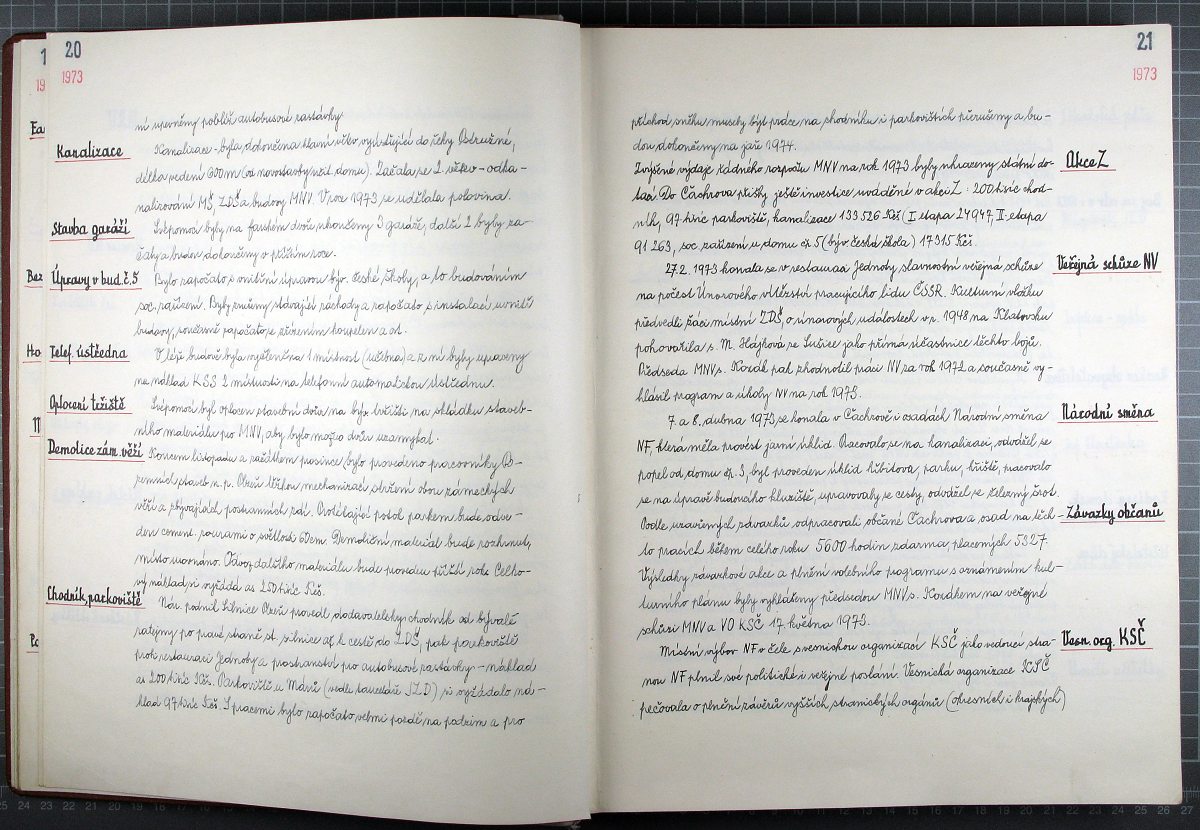 20
1973
ní upevněny poblíž autobusové zastávky.
Kanalizace
Kanalizace - byla dokončena hlavní větev vyúsťující do řeky Ostružné,
délka vedení 600 m (od novostavby učit. domu). Začala se 2. větev - odka-
nalizování MŠ, ZDŠ a budovy MNV. V roce 1973 se udělala polovina.
Stavba garáží
Svépomocí byly na farském dvoře ukončeny 3 garáže, další 2 byly za-
čaty a budou dokončeny v příštím roce.
Úpravy v bud. č. 5
Bylo započato s vnitřní úpravou býv. české školy, a to budováním
soc. zařízení. Byly zrušeny stávající záchody a započato s instalací uvnitř
budovy, současně započato se zřízením koupelen a od.
Telef. ústředna
V téže budově byla vyčleněna 1 místnost (učebna) a z ní byly upraveny
na náklad KSS 2 místnosti na telefonní automatickou ústřednu.
Oplocení tržiště
Svépomocí byl oplocen stavební dvůr na býv. tržišti na skládku staveb-
ního materiálu pro MNV, aby bylo možno dvůr uzamykat.
Demolice zám. věží
Koncem listopadu a začátkem prosince bylo provedeno pracovníky Po-
zemních staveb n. p. Plzeň těžkou mechanizací stržení obou zámeckých
věží a zbývajících postranních zdí. Protékající potok parkem bude odve-
den cement. rourami o světlosti 60 cm. Demoliční materiál bude rozhrnut,
místo urovnáno. Návoz dalšího materiálu bude proveden příští rok. Celko-
vý náklad si vyžádá as 250 tisíc Kčs.
Chodník, parkoviště
Nár. podnik Silnice Plzeň provedl dodavatelsky chodník od bývalé
ratejny po pravé straně st. silnice až k cestě do ZDŠ, pak parkoviště
proti restauraci Jednoty a prostranství pro autobusové zastávky - náklad
as 200 tisíc Kčs. Parkoviště u Márů (vedle kanceláří JZD) si vyžádalo ná-
klad 97 tisíc Kčs. S pracemi bylo započato velmi pozdě na podzim a pro
21
1973
příchod sněhu musely být práce na chodníku i parkovištích přerušeny a bu-
dou dokončeny na jaře 1974.
Akce Z
Zvýšené výdaje řádného rozpočtu MNV na rok 1973 byly uhrazeny státní do-
tací. Do Čachrova přišly ještě investice uváděné v akci Z: 200 tisíc chod-
ník, 97 tisíc parkoviště, kanalizace 133.526 Kčs (I. etapa 27947, II. etapa
91 263, soc. zařízení u domu čp. 5 (býv. česká škola) 17315 Kčs.
Veřejná schůze NV
27. 2. 1973 konala se v restauraci Jednoty slavnostní veřejná schůze
na počest Únorového vítězství pracujícího lidu ČSSR. Kulturní vložku
předvedli žáci místní ZDŠ, o únorových událostech v r. 1948 na Klatovsku
pohovořila s. M. Hájková ze Sušice jako přímá účastnice těchto bojů.
Předseda MNV s. Kozák pak zhodnotil práci NV za rok 1972 a současně vy-
hlásil program a úkoly NV na rok 1973.
Národní směna
7. a 8. dubna 1973 se konala v Čachrově i osadách Národní směna
NF, která měla provést jarní úklid. Pracovalo se na kanalizaci, odvážel se
popel od domu čp. 3, byl proveden úklid hřbitova, parku, hřiště, pracovalo
se na úpravě budoucího kluziště, upravovaly se cesty, odvážel se železný šrot.
Závazky občanů
Podle uzavřených závazků odpracovali občané Čachrova a osad na těch-
to pracích během celého roku 5600 hodin zdarma, placených 5327.
Výsledky závazkové akce a plnění volebního programu s oznámením kul-
turního plánu byly vyhlášeny předsedou MNV s. Kozákem na veřejné
schůzi MNV a VO KSČ 17. května 1973.
Vesn. org. KSČ
Místní výbor NF v čele s vesnickou organizací KSČ jako vedoucí stra-
nou NF plnil své politické i veřejné poslání. Vesnická organizace KSČ
pečovala o plnění závěrů vyšších stranických orgánů (okresních i krajských)